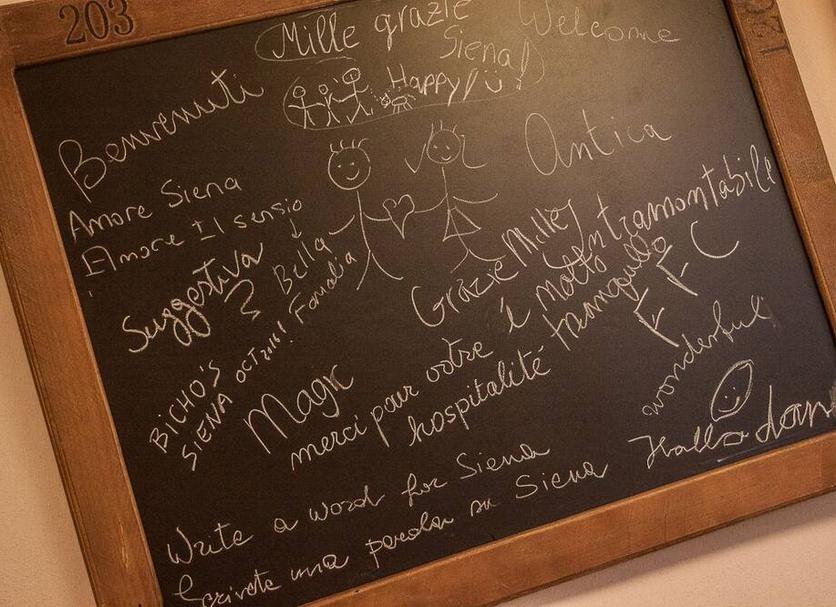 203
Mille grazie
Siena!
Welcome
Happy!
Benvenuti
Antica
Amore Siena
Amore Il sensio
Suggestiva
Bella
Famalia
Grazie Milley
Intramontabile
é molto
tranquillo
F F C
BICHO'S
SIENA OCT 2016!
Magic
merci pour votre
hospitalité
wonderful!
Hallo
Write a word for Siena
Scrivete una parola su Siena